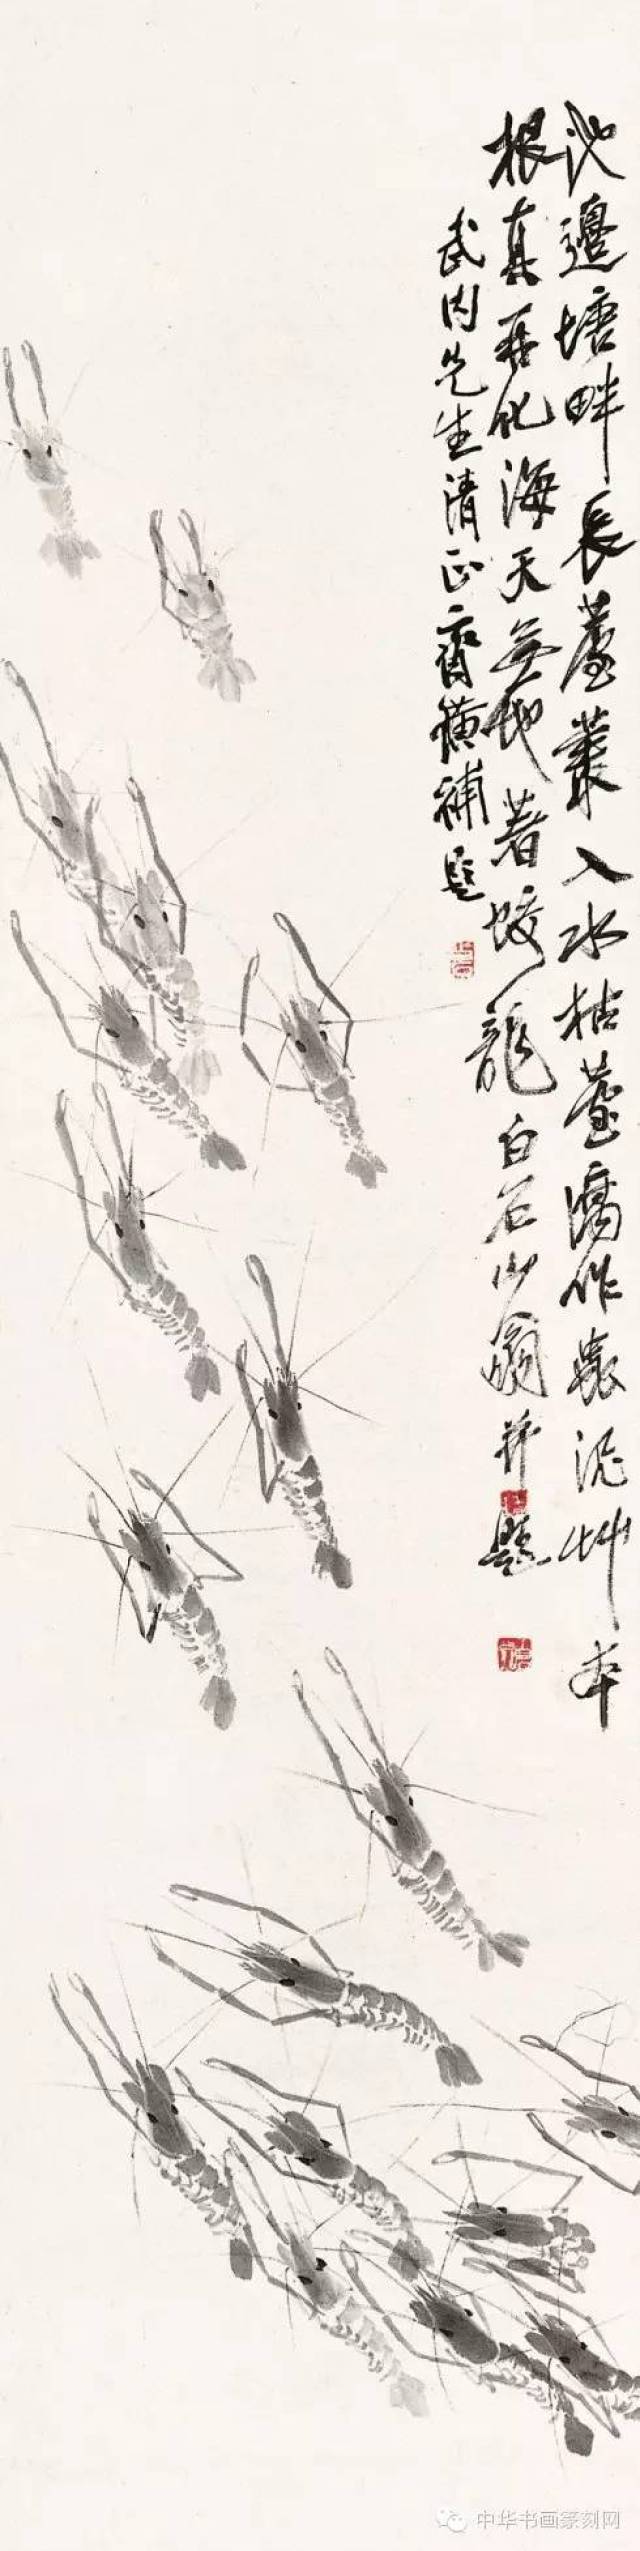 池邊塘畔長蘆叢入水枯蘆腐作蟲泥艸本
根真若化海天無地著蛟龍白石山翁并題
武内先生清正齊璜補題
中华书画篆刻网